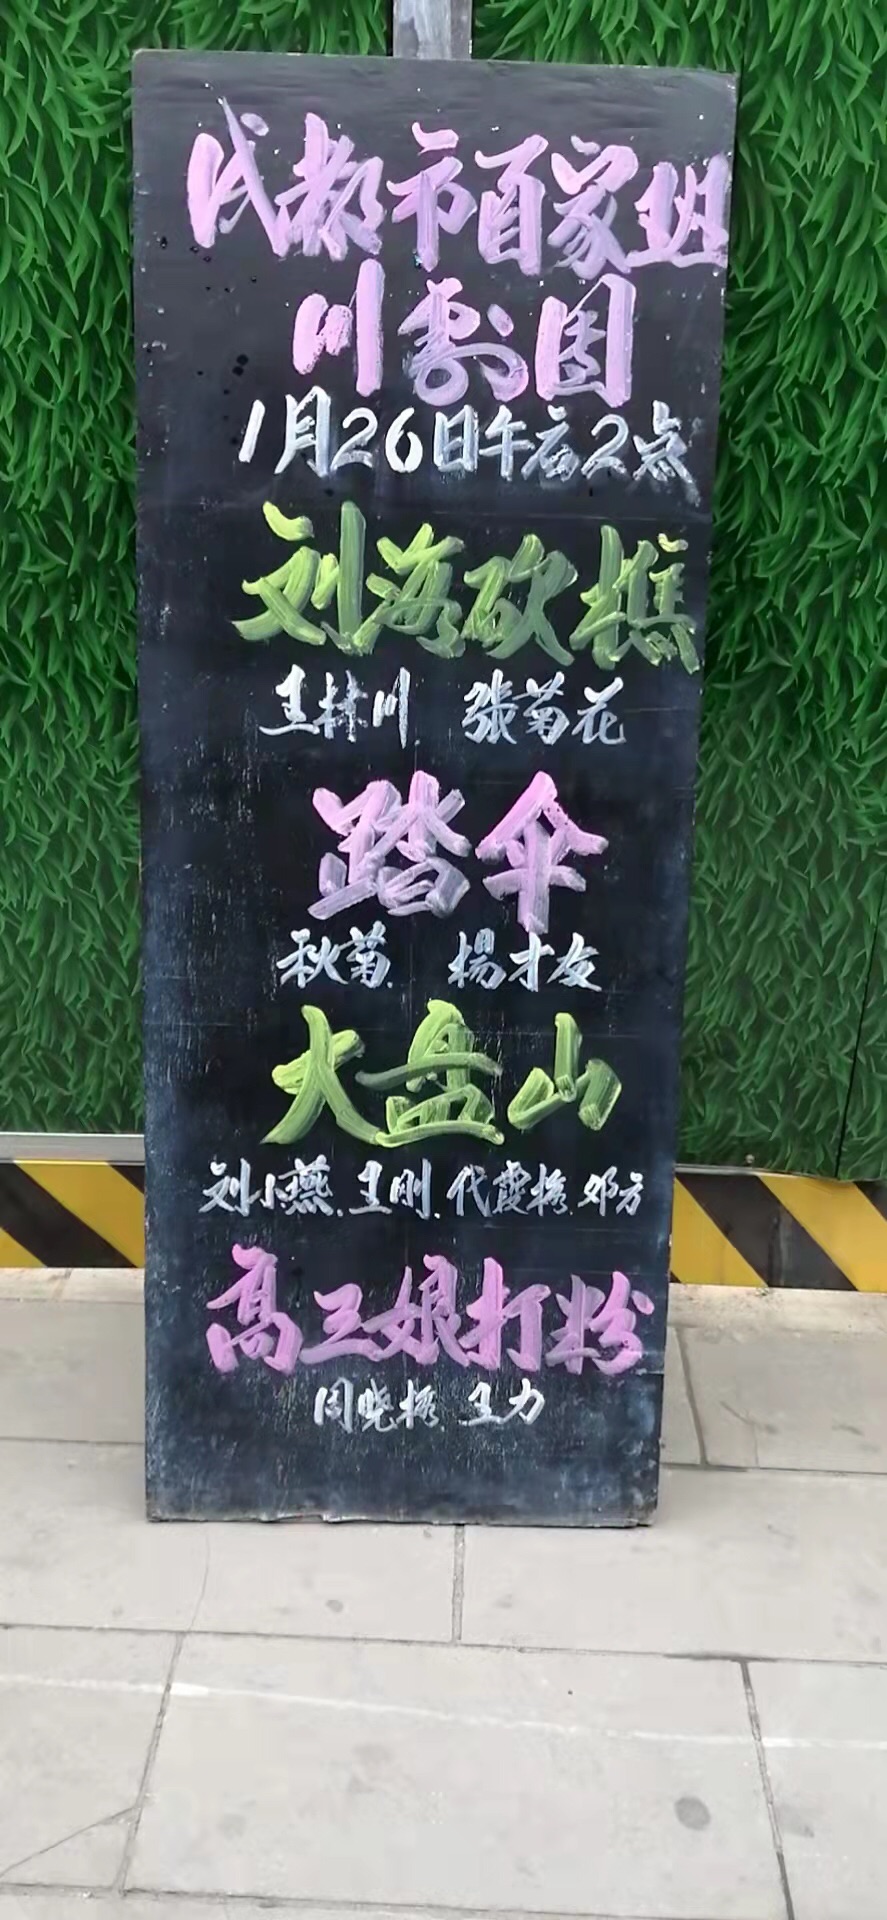 成都市百家班
川剧团
1月26日午后2点
刘海砍樵
王林川 张菊花
踏伞
秋菊. 楊才友
大盘山
刘小燕.王刚.代霞 邓方
高三娘打粉
周晓 王力